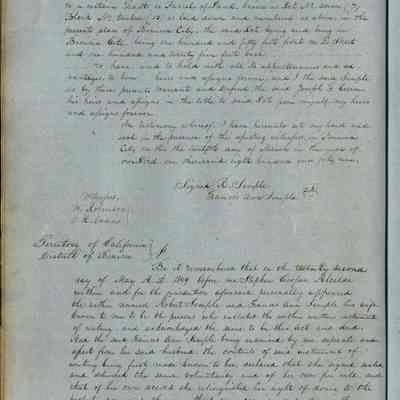 to a certain Tract or Parcel of Land, known as Lot No. seven (7)
Block No. twelve (12) as laid down and numbered as above in the
private plan of Benicia City, the said Lot lying and being in
Benicia City, being one hundred and fifty feet front on D Street
and one hundred and twenty five feet back.
To have and to hold with all the appurtenances and ad-
vantages, to him heirs and assigns forever, and I the said Semple
do by these presents warrant and defend the said Joseph
his heirs and assigns in the title to said Lot from myself my heirs
and assigns forever.
In testimony whereof I have hereunto set my hand and
seal in the presence of the subscribing witnesses, in Benicia
City on this the twelfth day of March in the year of
our Lord one thousand eight hundred and forty nine.
Signed R. Semple
Frances Ann Semple
Witness,
W. Robinson
Territory of California
District of Benicia
Be it remembered that on the twenty second
day of May A.D. 1849 before me Stephen Cooper Alcalde
within and for the jurisdiction aforesaid personally appeared
the within named Robert Semple and Frances Ann Semple his wife
known to me to be the persons who executed the within written instrument
of writing, and acknowledged the same to be their act and deed.
And the said Frances Ann Semple being examined by me separate and
apart from her said husband, the contents of said instrument of
writing being first made known to her, declared that she signed sealed
and delivered the same voluntarily and of her own free will and
that of her own accord she relinquished her right of dower to the